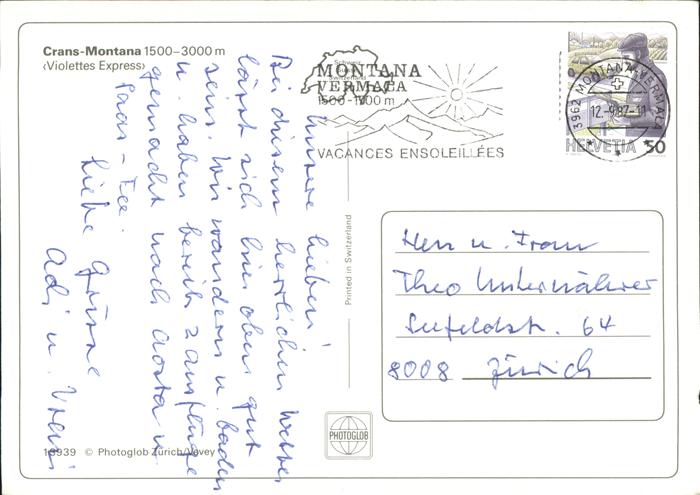 Crans-Montana 1500–3000 m
‹Violettes Express›
Unsere Lieben!
Bei diesem herrlichen Wetter
lässt sich hier oben gut
sein. Wir wandern u. baden
u. haben bereits 2 Ausflüge
gemacht nach Aosta u.
Saas-Fee.
Liebe Grüsse
Adi u. Vreni
MONTANA
VERMALA
1500-1700 m
VACANCES ENSOLEILLÉES
3962 MONTANA-VERMALA
12.-9.87-11
HELVETIA 50
Printed in Switzerland
Herr u. Frau
Theo Unternährer
Seefeldstr. 64
8008 Zürich
PHOTOGLOB
13939 © Photoglob Zürich/Vevey